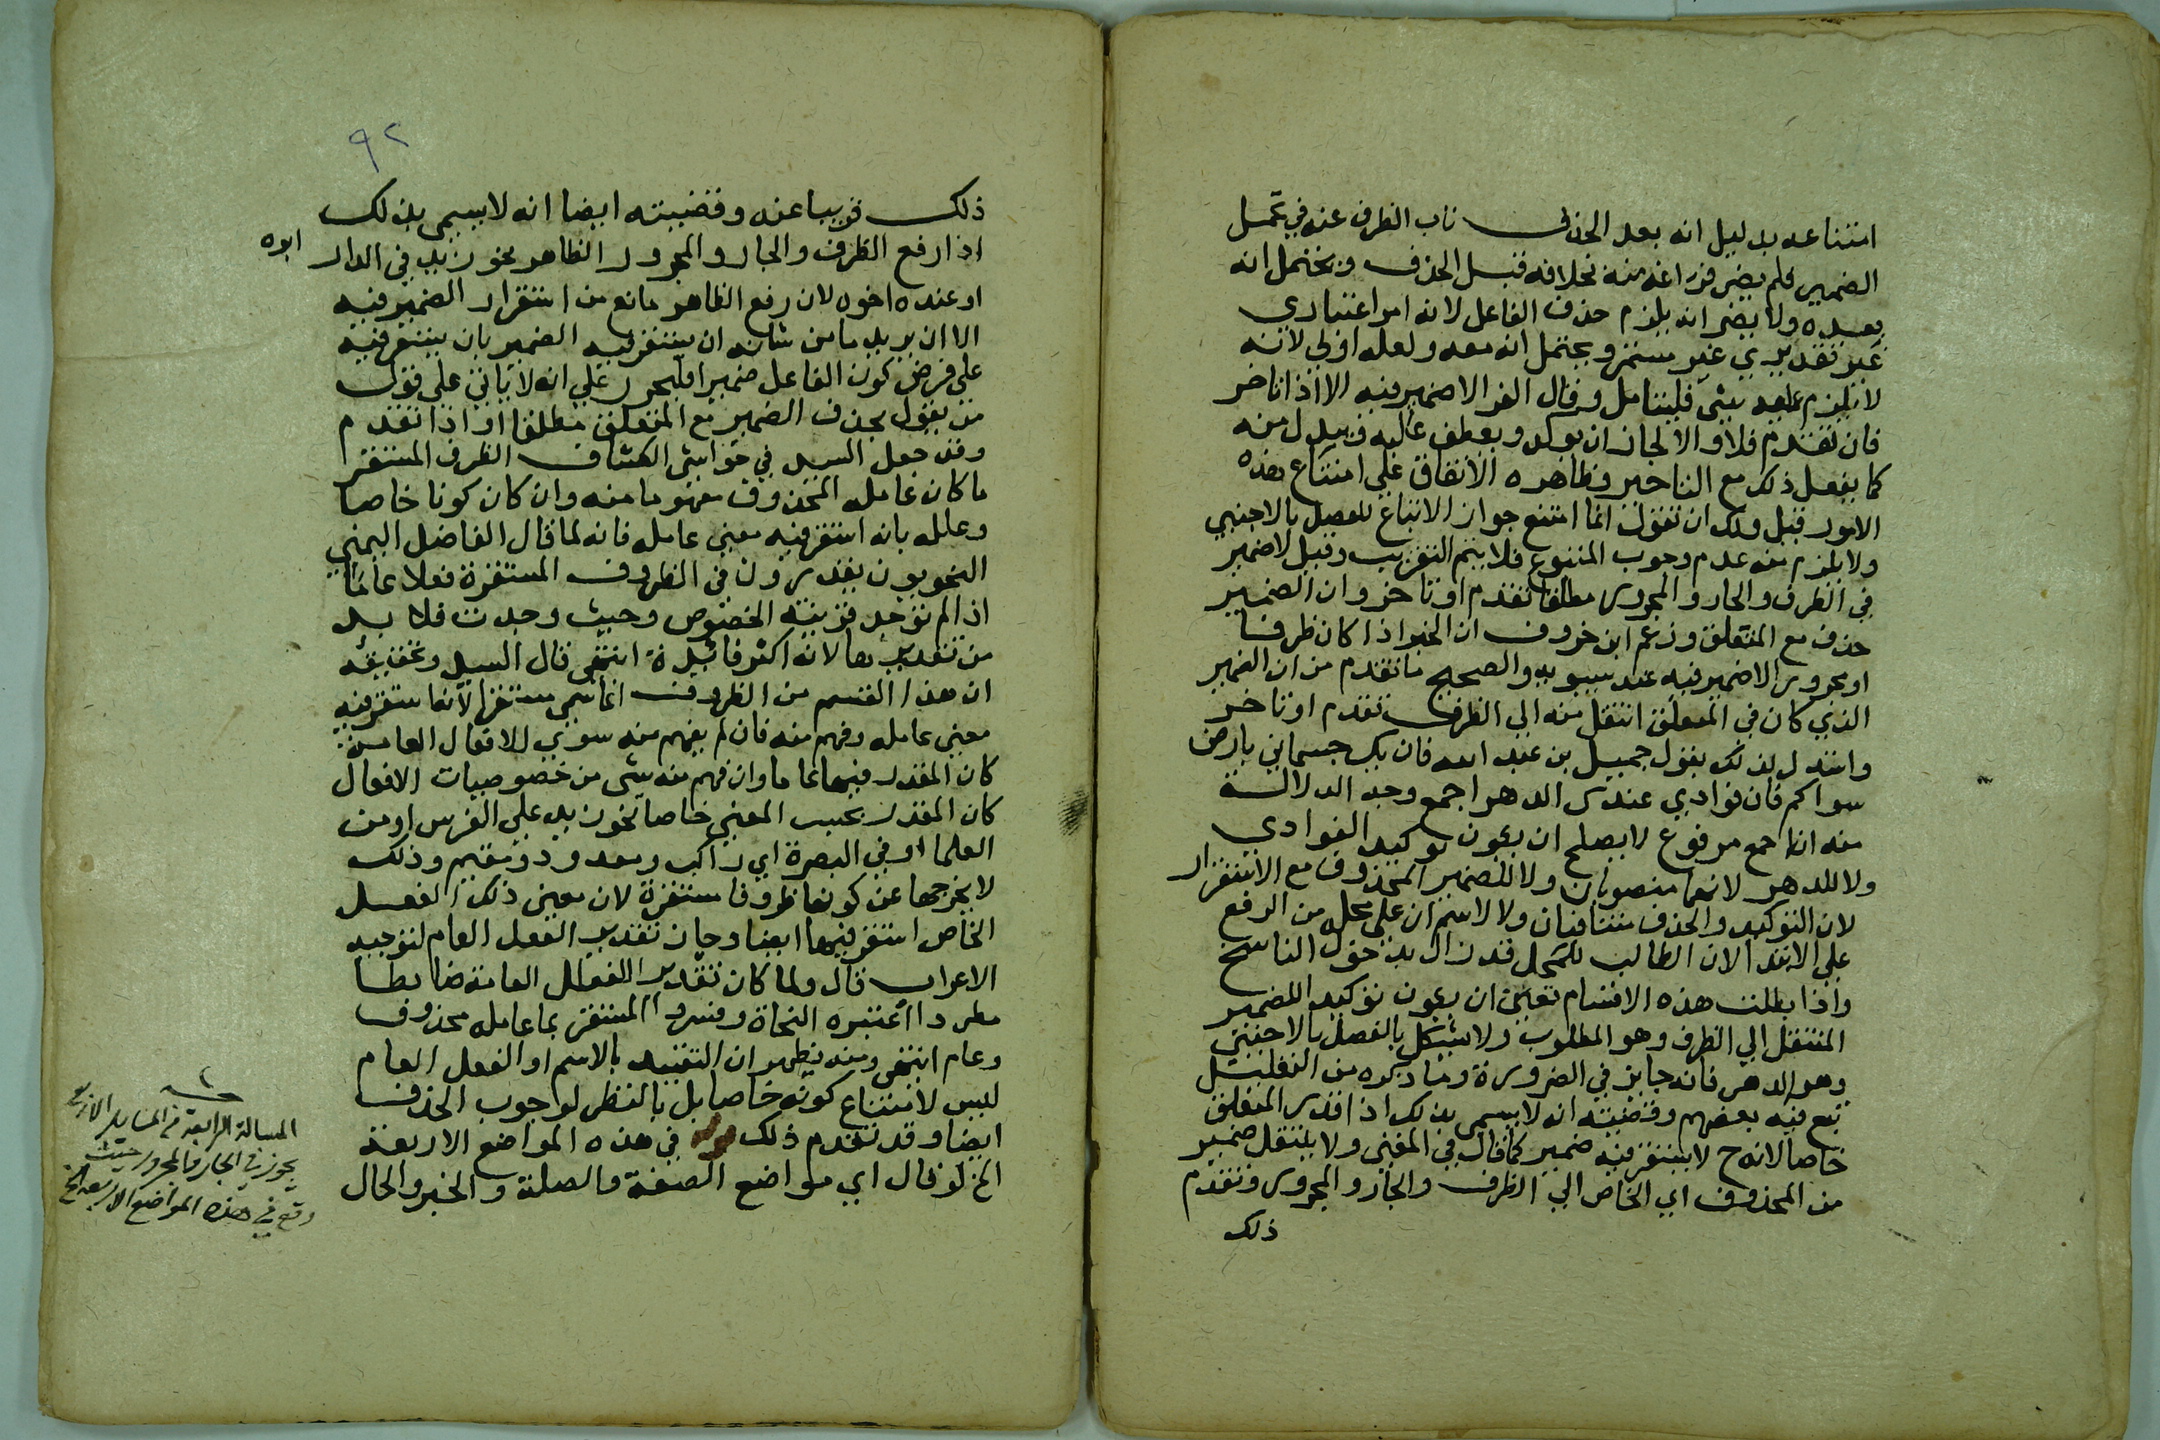 امتناعه بدليل انه بعد الحذف ناب الظرف عنه في تحمل
الضمير فلم يضر فراغه منه بخلافه قبل الحذف ويحتمل انه
بعده ولا يضر انه يلزم حذف الفاعل لانه امر اعتباري
غير تقديري غير مستمر ويحتمل انه معه ولعله اولي لانه
لا يلزم عليه شيء فليتامل وقال الفرا لا ضمير فيه الا اذا تاخر
فان تقدم فلا والا لجاز ان يوكد ويعطف عليه ويبدل منه
كما يفعل ذلك مع التاخير وظاهره الاتفاق علي امتناع هذه
الامور قبل ولك ان تقول انما امتنع جواز الاتباع للفصل بالاجنبي
ولا يلزم منه عدم وجوب المتبوع فلا يتم التقريب وقيل لا ضمير
في الظرف والجار والمجرور مطلقا تقدم او تاخر وان الضمير
حذف مع المتعلق وزعم ابن خروف ان الخبر اذا كان ظرفا
او مجرورا لا ضمير فيه عند سيبويه والصحيح ما تقدم من ان الضمير
الذي كان في المتعلق انتقل منه الي الظرف تقدم او تاخر
واستدل لذلك بقول جميل بن عبد الله فان يك جسماني بارض
سواكم فان فوادي عندك الدهر اجمع وجه الدلالة
منه ان اجمع مرفوع لا يصلح ان يكون توكيد الفوادي
ولا للدهر لانهما منصوبان ولا للضمير المحذوف مع الاستقرار
لان التوكيد والحذف متنافيان ولا لاسم ان علي محله من الرفع
علي الابتدا لان الطالب للمحل قد زال بدخول الناسخ
واذا بطلت هذه الاقسام تعين ان يكون توكيدا للضمير
المنتقل الي الظرف وهو المطلوب ولا يشكل بالفصل بالاجنبي
وهو الدهر فانه جايز في الضرورة وما ذكره من التعليل
تبع فيه بعضهم وقضيته انه لا يسمي بذلك اذا قدر المتعلق
خاصا لانه ح لا يستقر فيه ضمير كما قال في المغني ولا ينتقل ضمير
من المحذوف اي الخاص الي الظرف والجار والمجرور وتقدم
ذلك
٩٢
ذلك قريبا عنه وقضيته ايضا انه لا يسمي بذلك
اذا رفع الظرف والجار والمجرور الظاهر نحو زيد في الدار ابوه
او عنده اخوه لان رفع الظاهر مانع من استقرار الضمير فيه
الا ان يريد ما من شانه ان يستقر فيه الضمير بان يستقر فيه
علي فرض كون الفاعل ضميرا فليحرر علي انه لا ياتي علي قول
من يقول بحذف الضمير مع المتعلق مطلقا او اذا تقدم
وقد جعل السيد في حواشي الكشاف الظرف المستقر
ما كان عامله المحذوف مفهوما منه وان كان كونا خاصا
وعلله بانه استقر فيه معني عامله فانه لما قال الفاضل اليمني
النحويون يقدرون في الظروف المستقرة فعلا عاما
اذا لم توجد قرينة الخصوص وحيث وجدت فلا بد
من تقديرها لانه اكثر فائدة انتهي قال السيد وتحقيقه
ان هذا القسم من الظروف انما سمي مستقرا لانها استقر فيه
معني عامله وفهم منه فان لم يفهم منه سوي الافعال العامة
كان المقدر فيها عاما وان فهم منه شي من خصوصيات الافعال
كان المقدر بحسب المعني خاصا نحو زيد علي الفرس او من
العلما او في البصرة اي راكب ومعدود ومقيم وذلك
لا يخرجها عن كونها ظروفا مستقرة لان معني ذلك الفعل
الخاص استقر فيها ايضا وجاز تقدير الفعل العام لتوجيه
الاعراب قال ولما كان تقدير الافعال العامة ضابطا
مطردا اعتبره النحاة وفسروا المستقر بما عامله محذوف
وعام انتهي ومنه يظهر ان التقييد بالاسم او الفعل العام
ليس لامتناع كونه خاصا بل بالنظر لوجوب الحذف
ايضا وقد تقدم ذلك في هذه المواضع الاربعة
الخ لو قال اي مواضع الصفة والصلة والخبر والحال
المسالة الرابعة من المسايل الاربع
يجوز في الجار والمجرور حيث
وقع في هذه المواضع الاربعة الخ